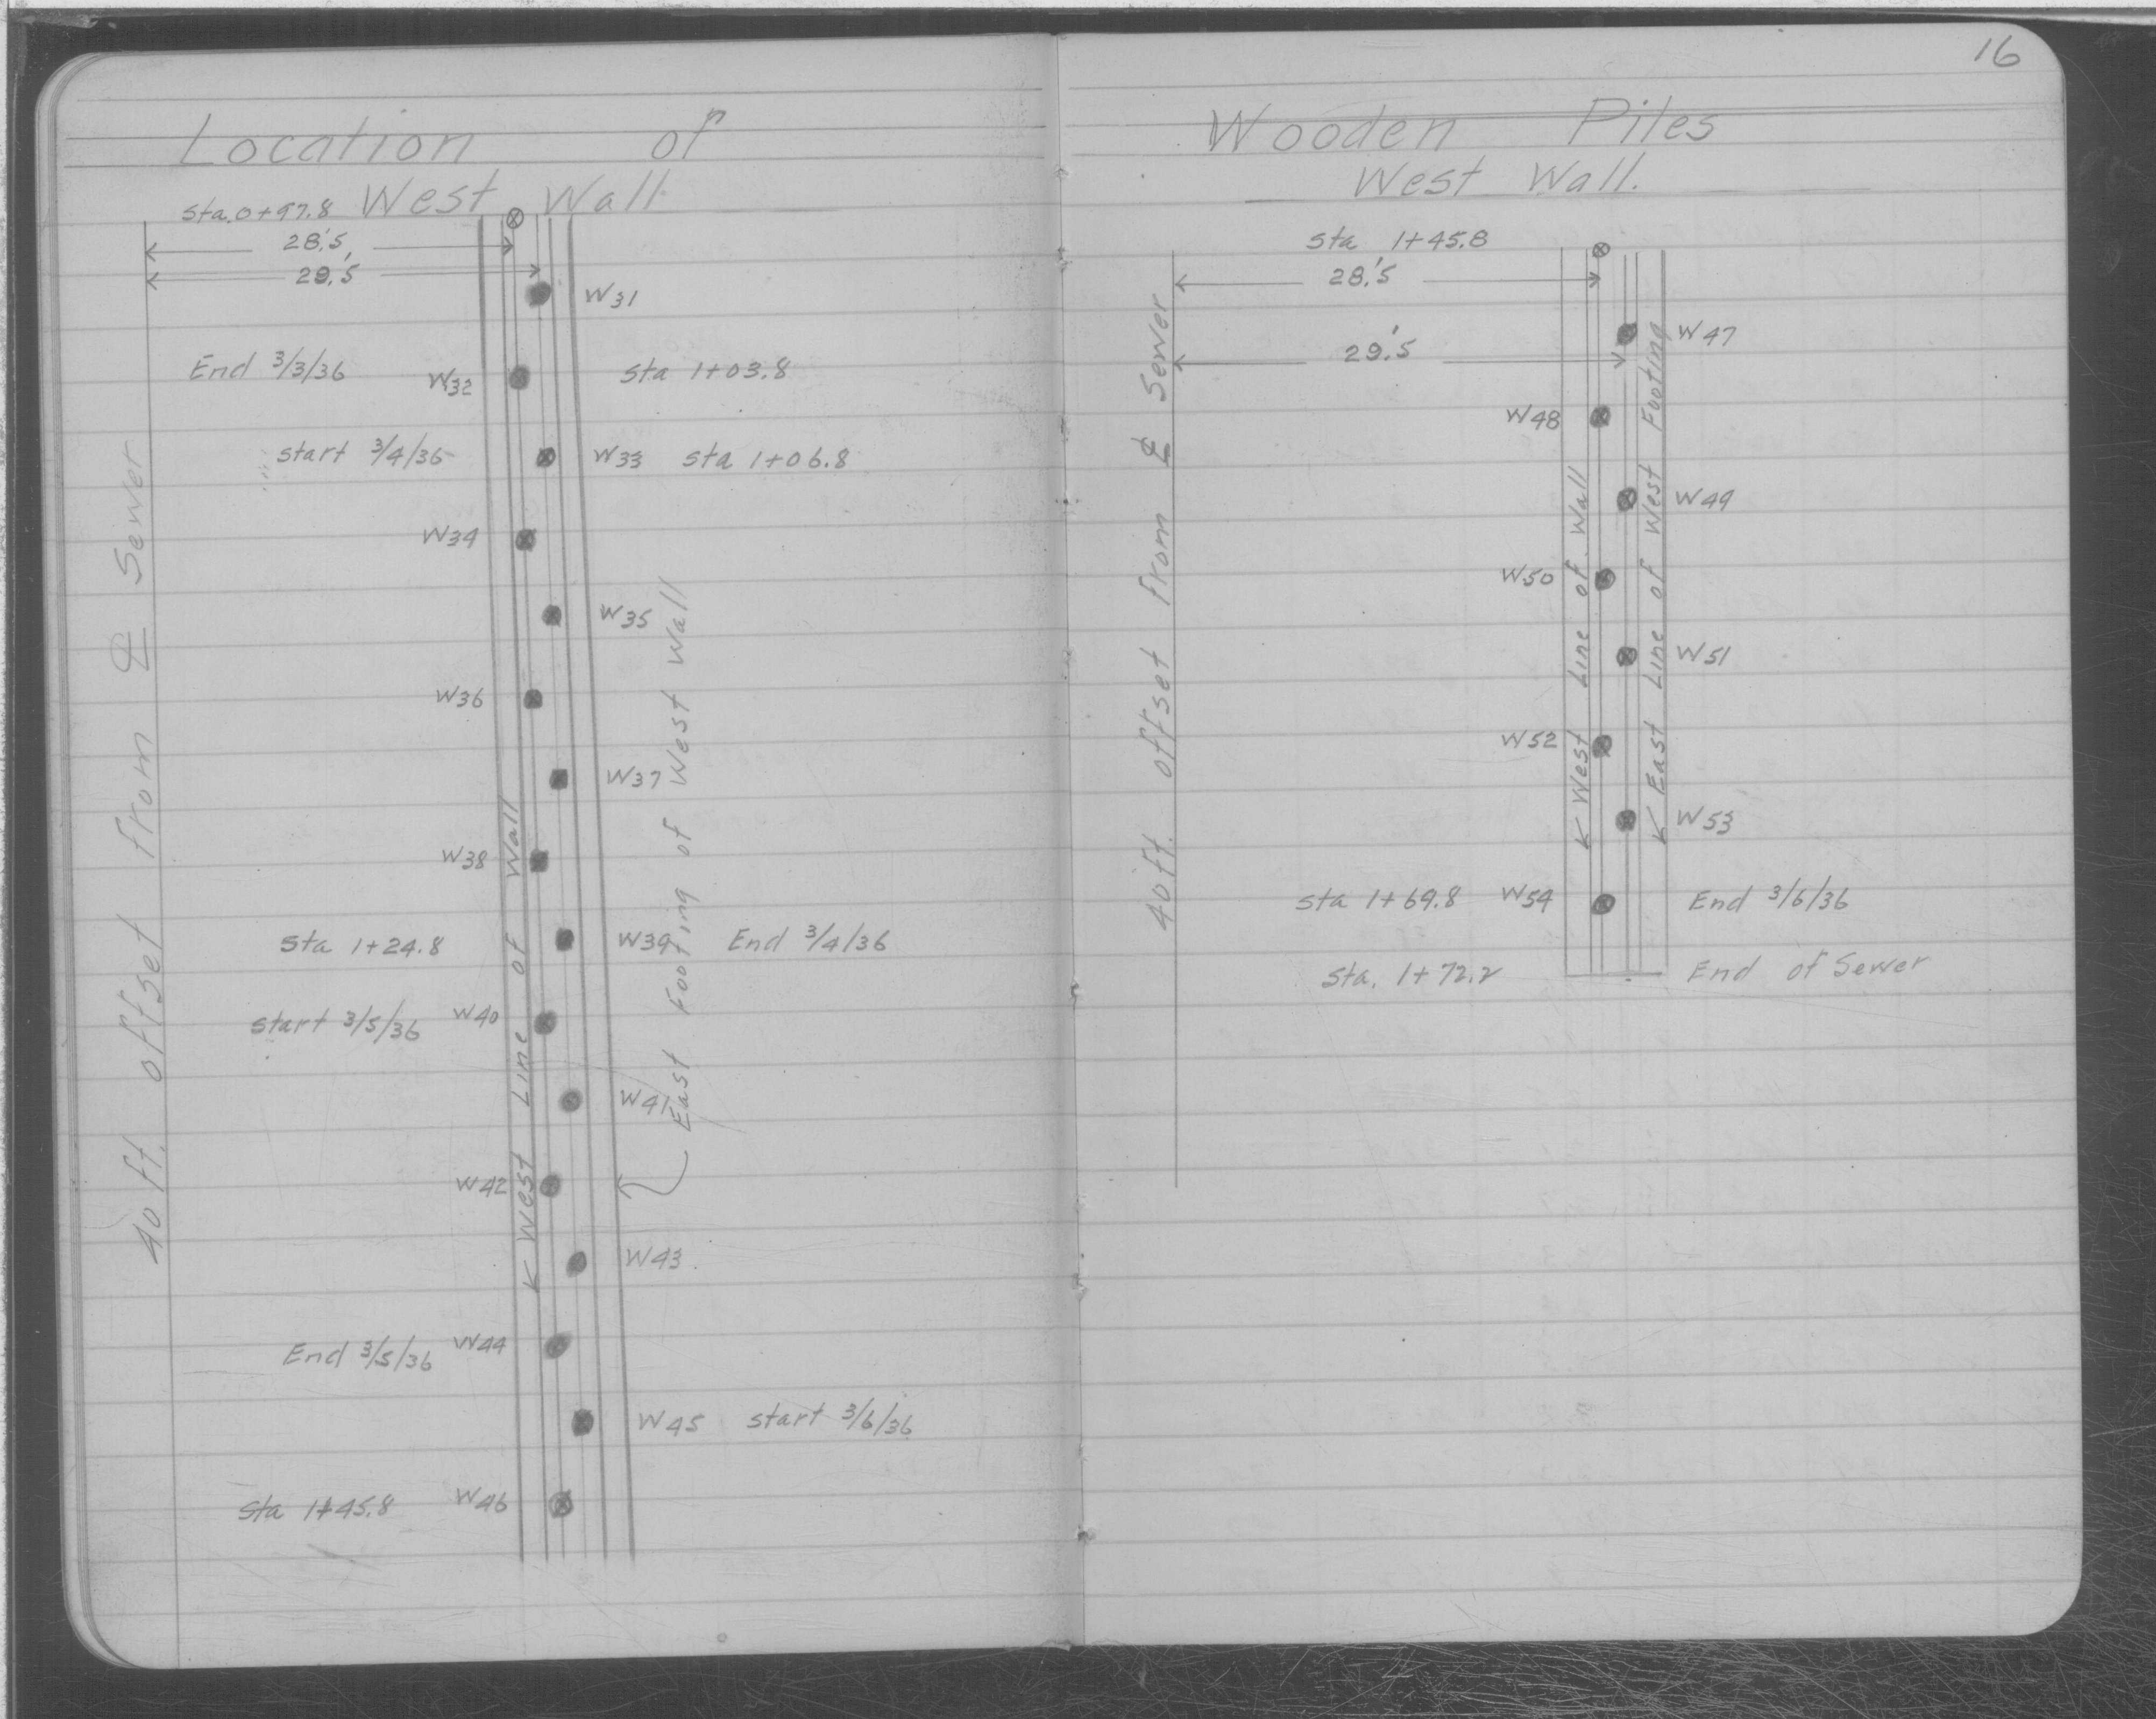 16
Location of
West Wall
Sta. 0+97.8
28.'5
29.'5
W31
End 3/3/36 W32 Sta 1+03.8
Start 3/4/36 W33 Sta 1+06.8
W34
W35
W36
W37
W38
Sta 1+24.8 W39 End 3/4/36
Start 3/5/36 W40
W41
W42
W43
End 3/5/36 W44
W45 Start 3/6/36
Sta 1+45.8 W46
40 ft. offset from ℄ Sewer
West Line of Wall
East Footing of West Wall
Wooden Piles
West Wall.
Sta 1+45.8
28.'5
W47
29.'5
W48
W49
W50
W51
W52
W53
Sta 1+69.8 W54 End 3/6/36
Sta. 1+72.2 End of Sewer
40 ft. offset from ℄ Sewer
West Line of Wall
East Line of West Footing